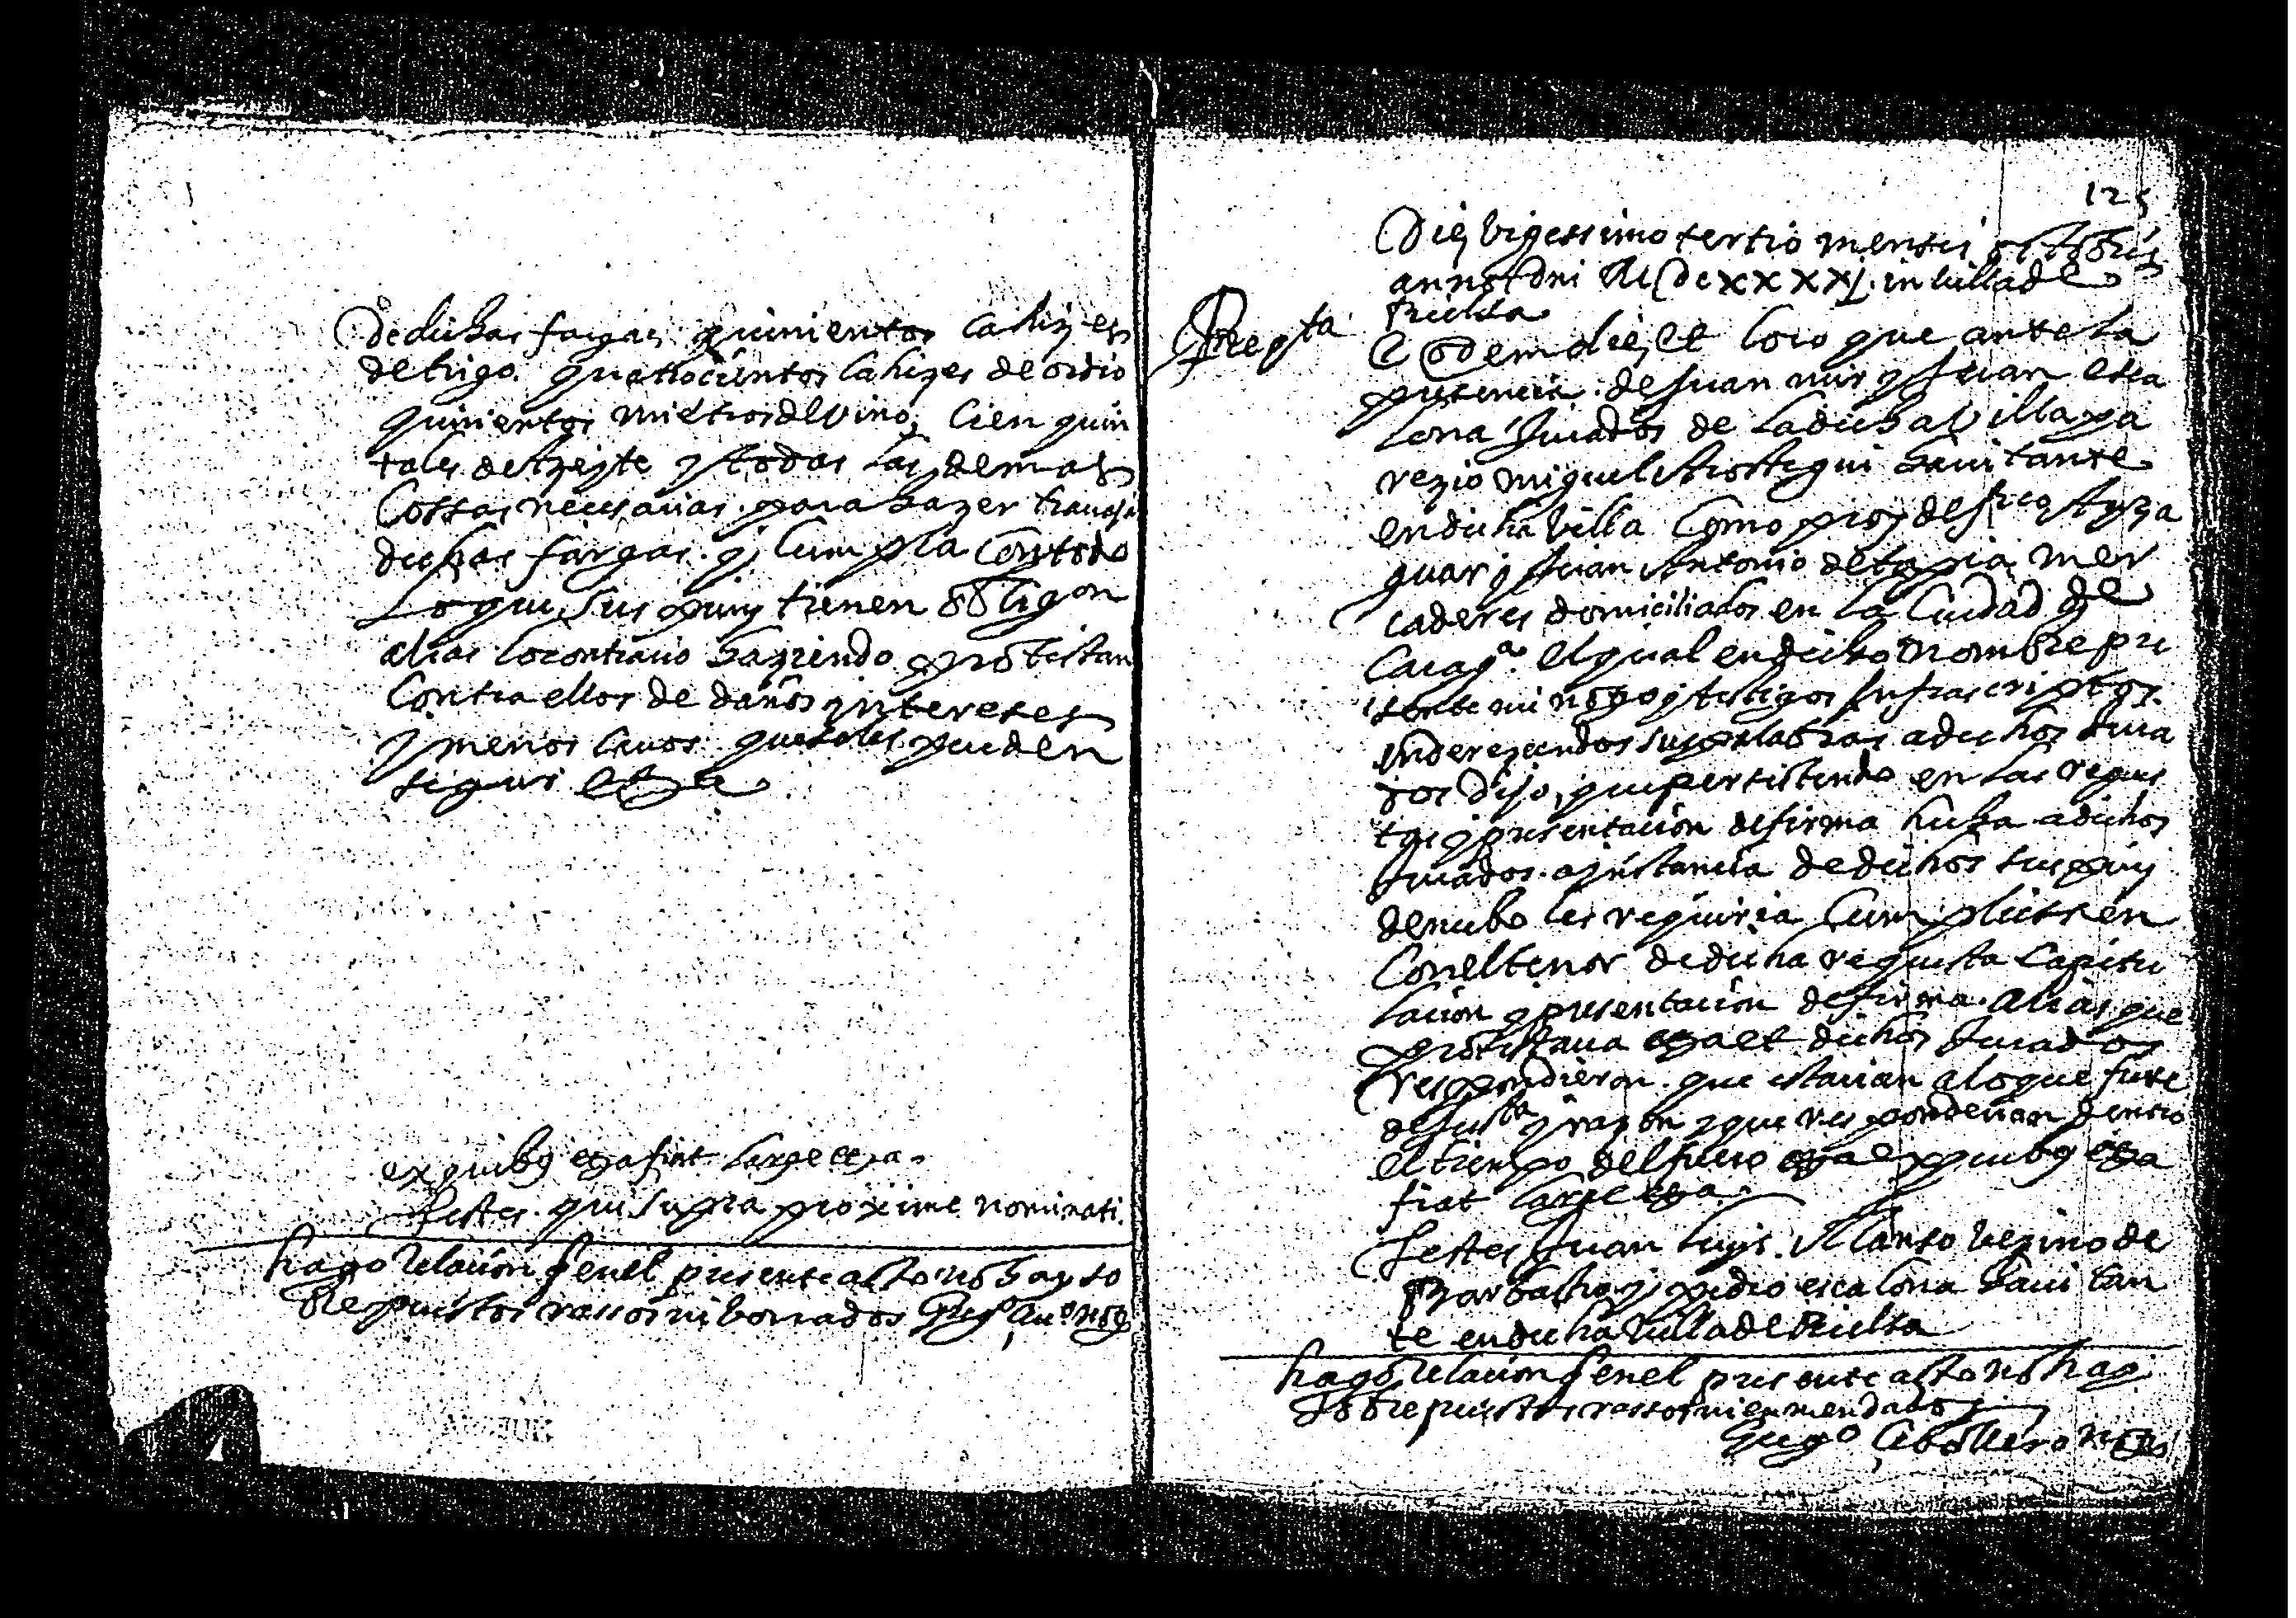 de dichas fargas quinientos cahizes
de trigo quattocientos cahizes de ordio
quinientos mietros de vino, cien quin
tales de Azeyte y todas las demas
Cossas necesarias para hazer trauajar
dichas fargas. y Cumpla Con todo
Lo que sus pnles tienen obligon
alias lo contrario haziendo protestan
Contra ellos de daños yntereses
y menos cauos que se les pueden
siguir etca
ex quibus etca fiat large etca.
Testes qui supra proxime nominati.
hago relacion q en el presente acto no hay so
bre puestos rassos ni borrados Greg.º not.
125
Die vigessimo tertio mensis octobris
anno dni MDCXXXXI. in villa de
Bielsa
Reqta
Eodem die et loco que ante la
presencia de Juan mir y Juan esca
lona Jurados de la dicha Villa pa
rezio miguel Arostegui hauitante
en dicha villa Como pror de fco Ayza
guar y Juan Antonio de tapia mer
caderes domiciliados en la Ciudad de
Carag.ª el qual en dicho nombre pre
sente mi noto y testigos Infrascriptos
enderezando sus palabras a dichos Jura
dos dijo, que persistiendo en las reques
tas y presentacion de firma hecha a dichos
Jurados a ynstancia de dichos sus pnles
de nuebo les requiria Cumpliessen
Con el tenor de dicha requesta Capitu
lacion y presentacion de firma. alias que
protestaua etca et dichos Jurados
respondieron que estauan a lo que fuese
de Justa y razon y que responderian dentro
el tiempo del fuero etca ex quibus etca
fiat large etca.
Testes Juan luys Alanso vezino de
Barbastro y pedro escalona hauitan
te en dicha Villa de Bielsa
hago relacion q en el presente acto no hay
sobre puestos rassos ni enmendados
Greg.º Caballero not.